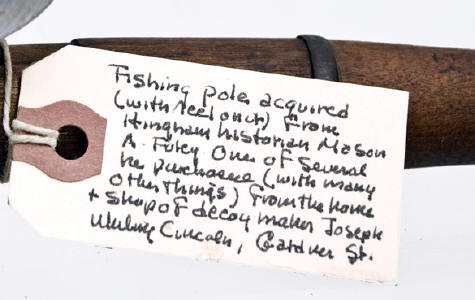 Fishing pole acquired
(with reel on it) from
Hingham historian Mason
A. Foley One of several
he purchased (with many
other things) from the home
+ shop of decoy maker Joseph
Lincoln, Gardner St.